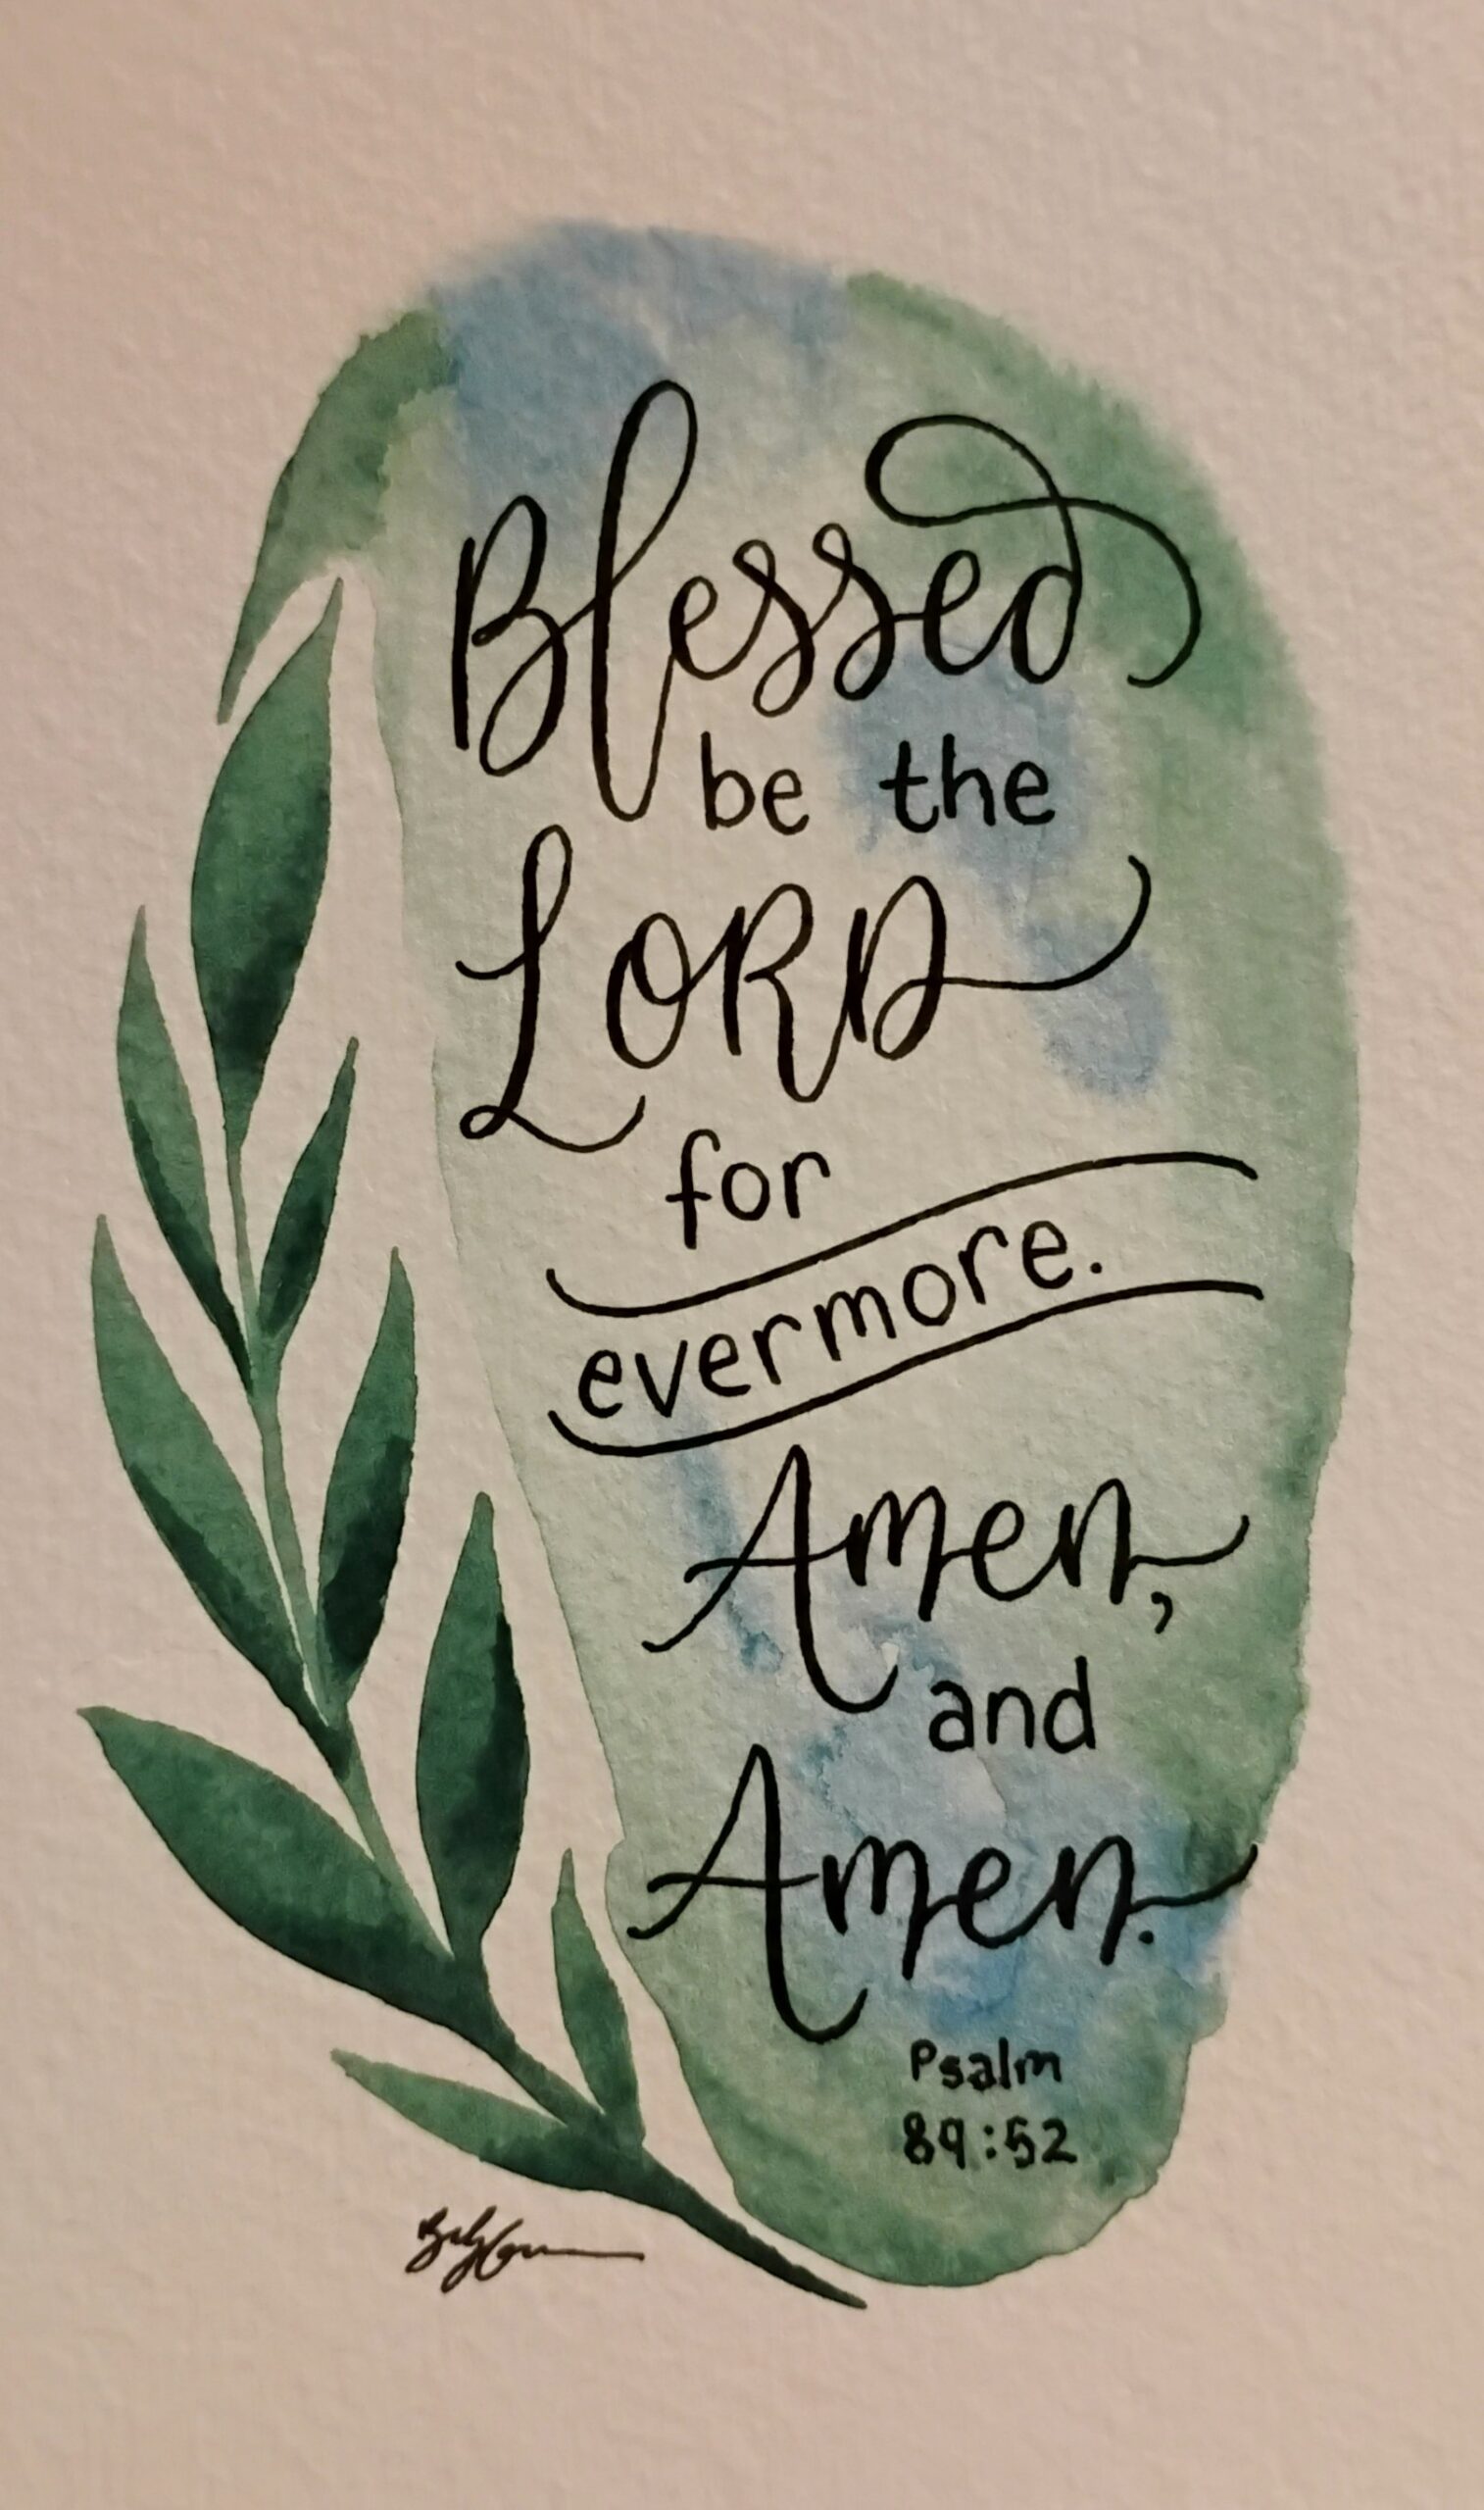 Blessed
be the
LORD
for
evermore.
Amen,
and
Amen.
Psalm
89:52